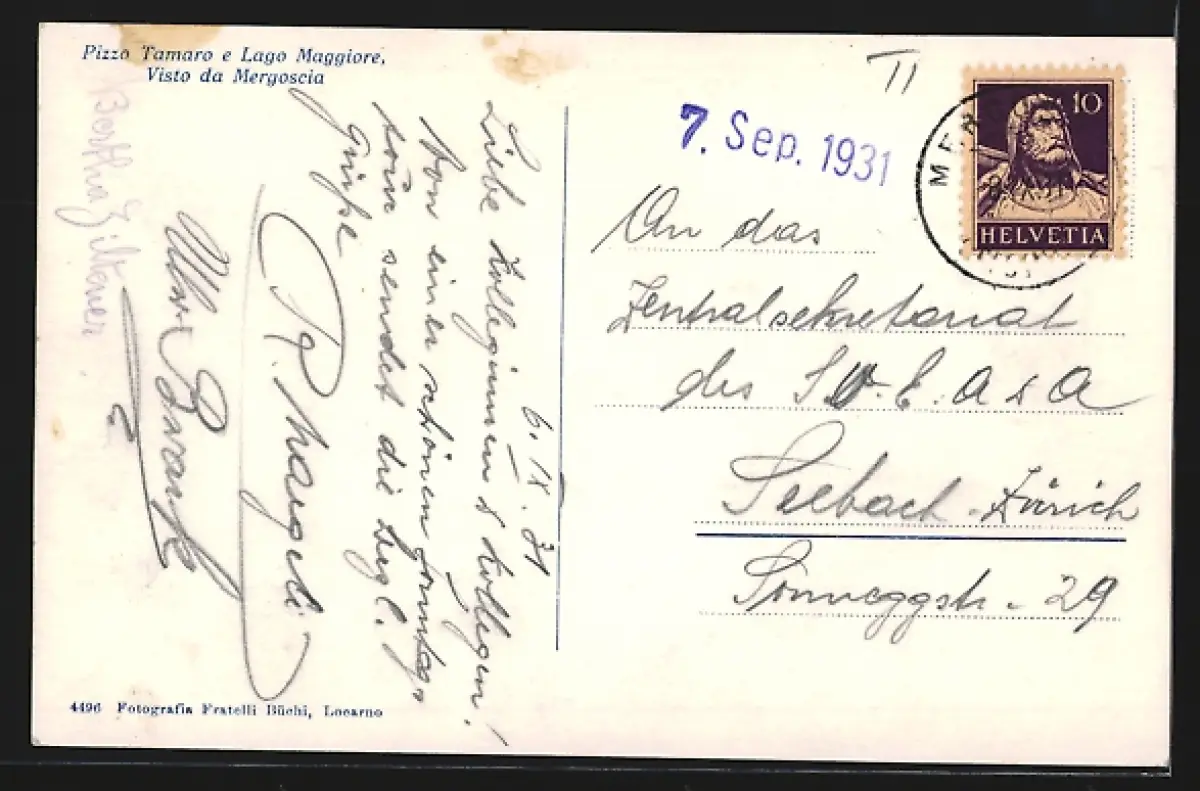 Pizzo Tamaro e Lago Maggiore,
Visto da Mergoscia
6. IX. 31
Liebe Kolleginnen & Kollegen!
Von einer schönen Sonntags
tour sendet die
Grüsse
Bertha
7. Sep. 1931
10
HELVETIA
An das
Zentralsekretariat
des S. V. E. A & A
Seebach-Zürich
Sonneggstr. 29
4496 Fotografia Fratelli Büchi, Locarno